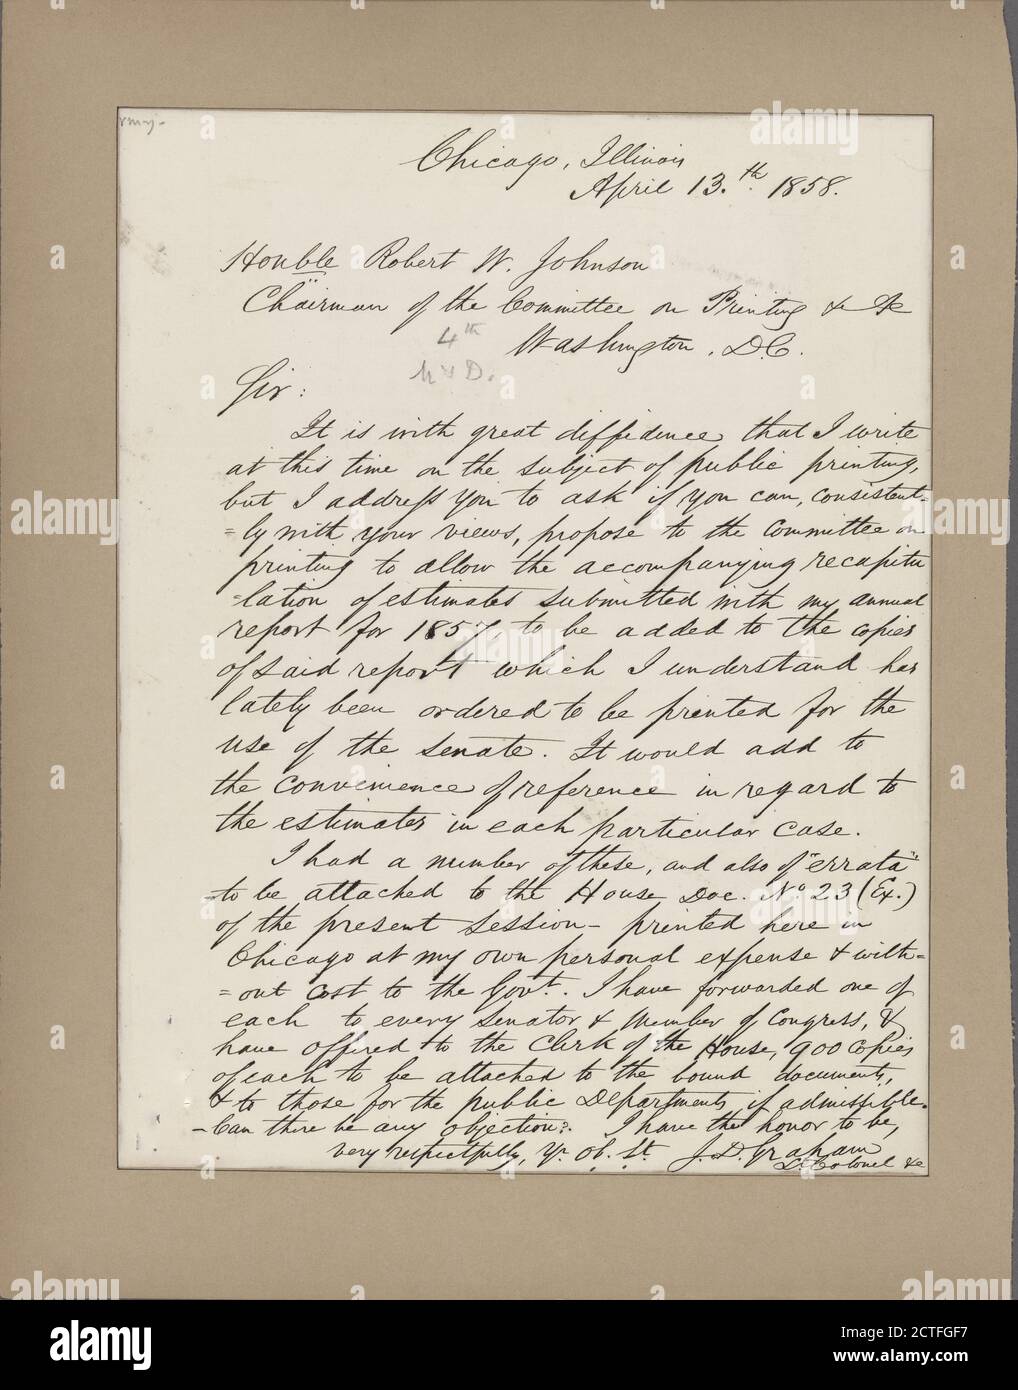 Chicago, Illinois
April 13.th 1858.
Honble Robert W. Johnson
Chairman of the Committee on Printing &c &c
Washington, D.C.
4th
Sir:
It is with great diffidence that I write
at this time on the subject of public printing,
but I address you to ask if you can, consistent-
=ly with your views, propose to the Committee on
printing to allow the accompanying recapitu
=lation of estimates submitted with my annual
report for 1857 to be added to the copies
of said report which I understand has
lately been ordered to be printed for the
use of the Senate. It would add to
the convenience of reference in regard to
the estimates in each particular case.
I had a number of these, and also of "errata"
-to be attached to the House Doc. No 23 (Ex.)
of the present session - printed here in
Chicago at my own personal expense & with=
=out cost to the Govt. I have forwarded one of
each to every Senator & Member of Congress, &
have offered to the Clerk of the House, 900 copies
of each to be attached to the bound documents,
& to those for the public Departments if admissible.
-Can there be any objection? I have the honor to be,
very respectfully, yr. ob. st. J. D. Graham
Lt Colonel &c
a alamy
alamy
Image ID: 2CTFGF7
www.alamy.com